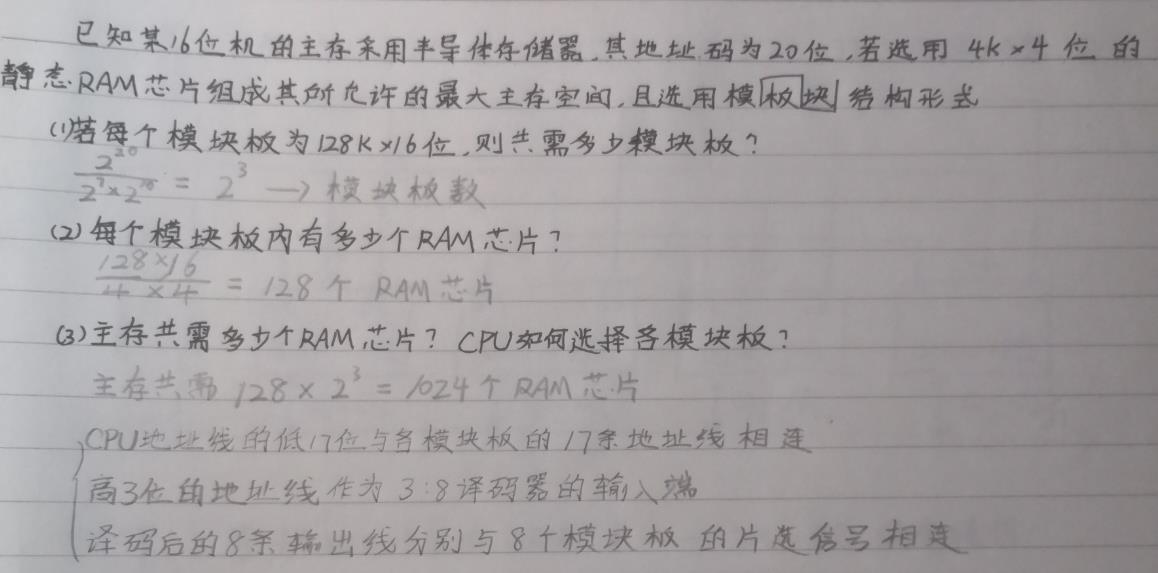 已知某16位机的主存采用半导体存储器,其地址码为20位,若选用 4K×4 位 的
静态RAM芯片组成其所允许的最大主存空间,且选用模板块结构形式
(1)若每个模块板为128K×16位,则共需多少模块板?
2^20 / 2^7×2^10 = 2^3 → 模块板数
(2)每个模块板内有多少个RAM芯片?
128×16 / 4×4 = 128个 RAM芯片
(3)主存共需多少个RAM芯片? CPU如何选择各模块板?
主存共需 128×2^3=1024个RAM芯片
CPU地址线的低17位与各模块板的17条地址线相连
高3位的地址线作为 3:8译码器的输入端
译码后的8条输出线分别与8个模块板 的片选信号相连